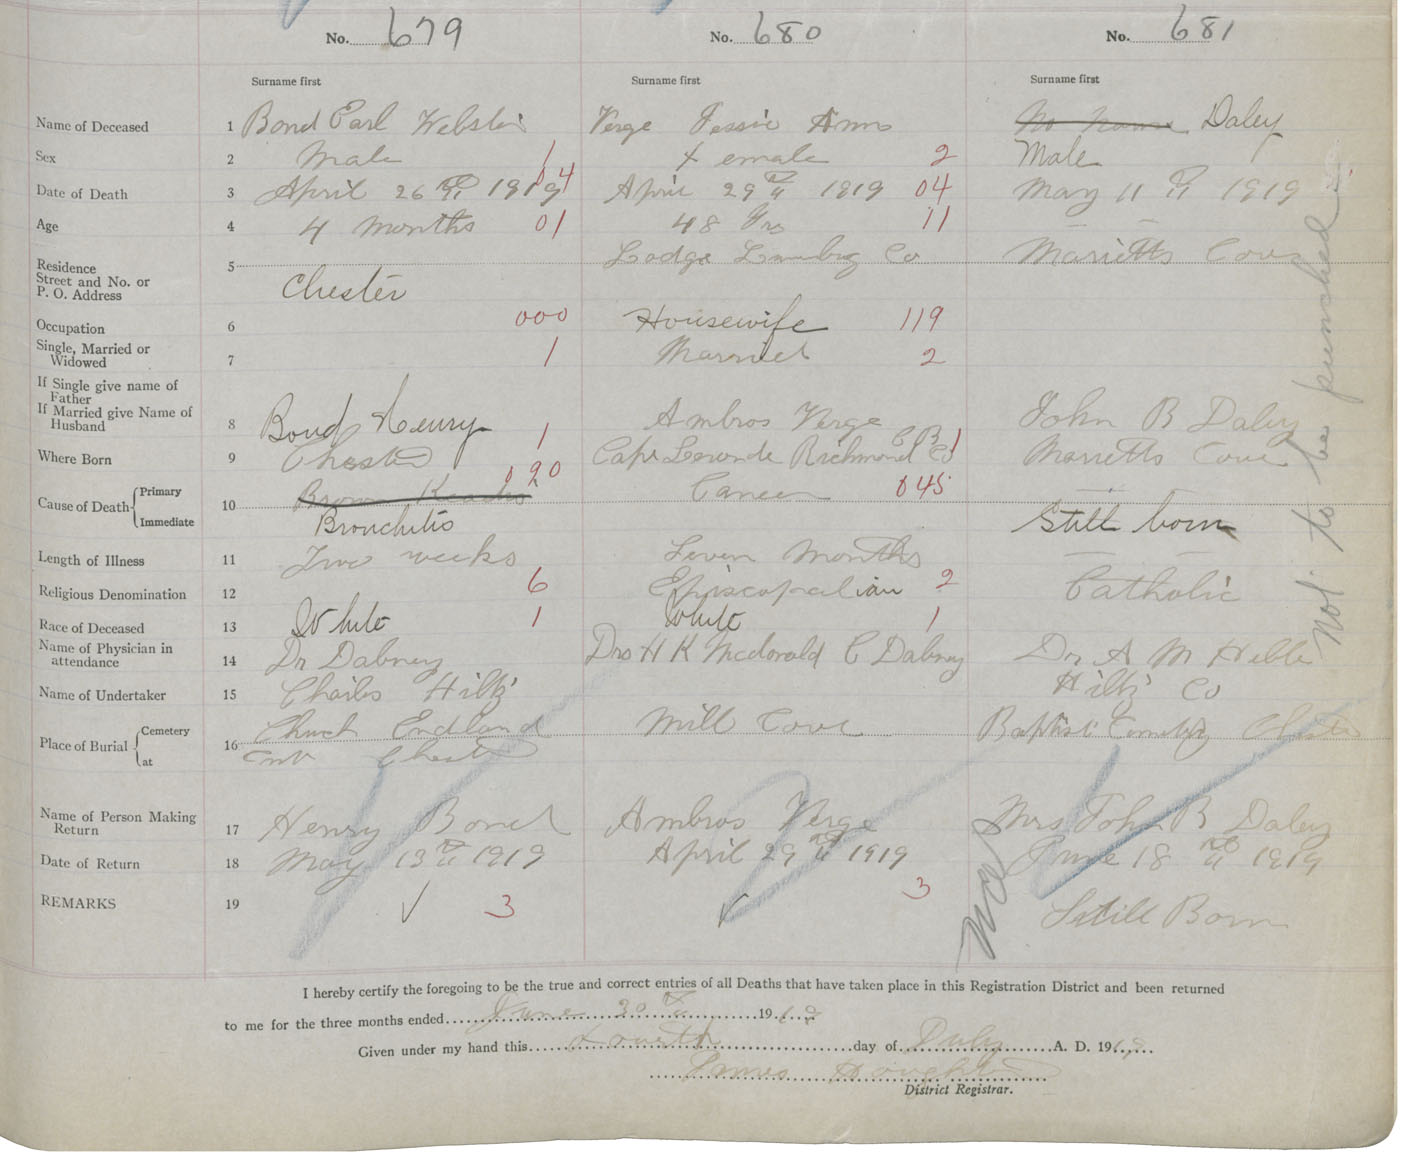 No. 679 No. 680 No. 681
Surname first Surname first Surname first
Name of Deceased 1 Bond Earl Webster Verge Jessie Ann No Name Daley
Sex 2 Male 1 Female 2 Male
Date of Death 3 April 26 th 1919 04 April 29 th 1919 04 May 11 th 1919
Age 4 4 months 01 48 Yrs 11 —
Residence
Street and No. or
P. O. Address
5 Chester Lodge Lunbg Co Marietts Cove
Occupation 6 000 Housewife 119
Single, Married or
Widowed
7 1 Married 2
If Single give name of
Father
If Married give Name of
Husband
8 Bond Henry Ambros Verge John B Daley
Where Born 9 Chester 1 Cape Richmond Co C B 1 Marietts Cove
Cause of Death Primary
Immediate
10 Bronchitis 020 Cancer 045 Still born
Length of Illness 11 Two weeks Seven Months — —
Religious Denomination 12 6 Episcopalian 2 Catholic
Race of Deceased 13 White 1 White 1
Name of Physician in
attendance
14 Dr Dabney Drs H K Mcdonald C Dabney Dr A M Hebb
Name of Undertaker 15 Charles Hiltz Hiltz Co
Place of Burial Cemetery
at
16 Church England Mill Cove Baptist Cemetery Chester
Chester
Name of Person Making
Return
17 Henry Bond Ambros Verge Mrs John B Daley
Date of Return 18 May 13 th 1919 April 29 th 1919 June 18 th 1919
REMARKS 19 ✓ 3 ✓ 3 Still Born
Not to be punched
I hereby certify the foregoing to be the true and correct entries of all Deaths that have taken place in this Registration District and been returned
to me for the three months ended June 30 th 1919
Given under my hand this fourth day of July A. D. 1919
James Houghton
District Registrar.